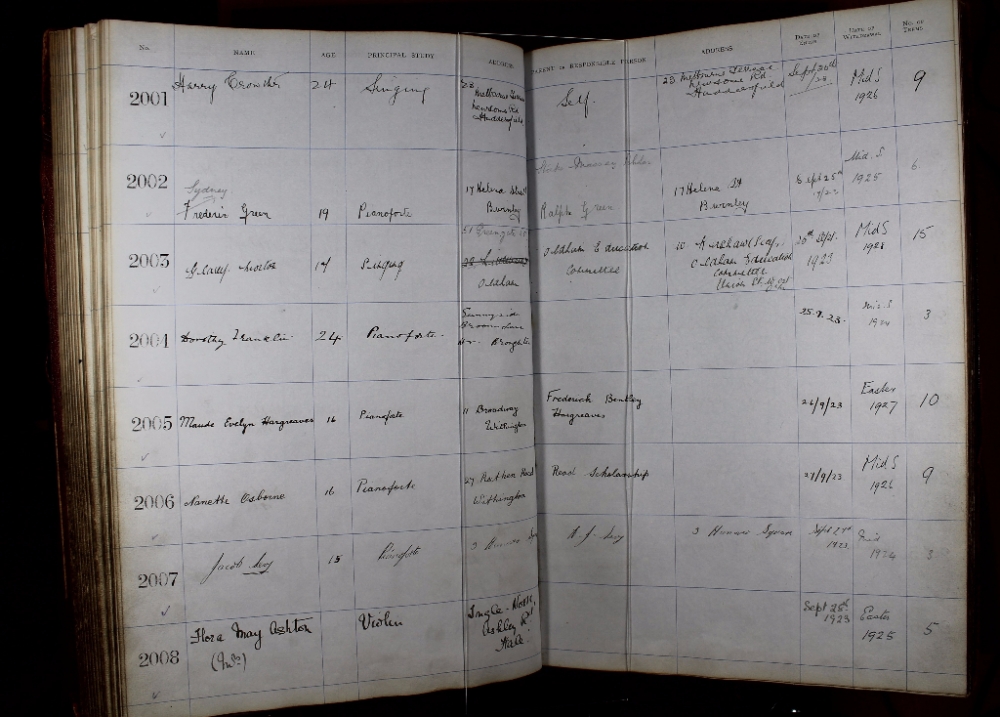 No. NAME AGE PRINCIPAL STUDY ADDRESS PARENT or RESPONSIBLE PERSON ADDRESS DATE OF ENTRY DATE OF WITHDRAWAL NO. OF TERMS
2001 Harry Crowther 24 Singing Self. Sept 20th 23 Mid S 1926 9
23 Melbourne Terrace
Newsome Rd.
Huddersfield
2002 Sydney Mid. S 6
Frederic Green 19 Pianoforte 17 Helena Street Ralph Green 17 Helena St Sept 25th 1925
Burnley Burnley
2003 Gladys 17 Singing Oldham Education 20th Sept. Mid S 15
Oldham Committee Oldham Education 1923 1928
Committee
Union St.
2004 Dorothy Franklin 24 Pianoforte. Sunnyside 25.9.23. Mid. S 3
Broughton 1924
2005 Maude Evelyn Hargreaves 16 Pianoforte 11 Broadway Frederick Bentley 26/9/23 Easter 10
Withington Hargreaves 1927
2006 Nanette Osborne 16 Pianoforte 27 Road Scholarship 27/9/23 Mid S 9
Withington 1926
2007 Jacob Levy 15 Pianoforte 3 Levy 3 Square Sept 27th Mid 3
1923 1924
2008 Flora May Ashton Violin Ingle-Nook, Sept 28th Easter 5
(Mrs) Ashley Rd 1923 1925
Hale.